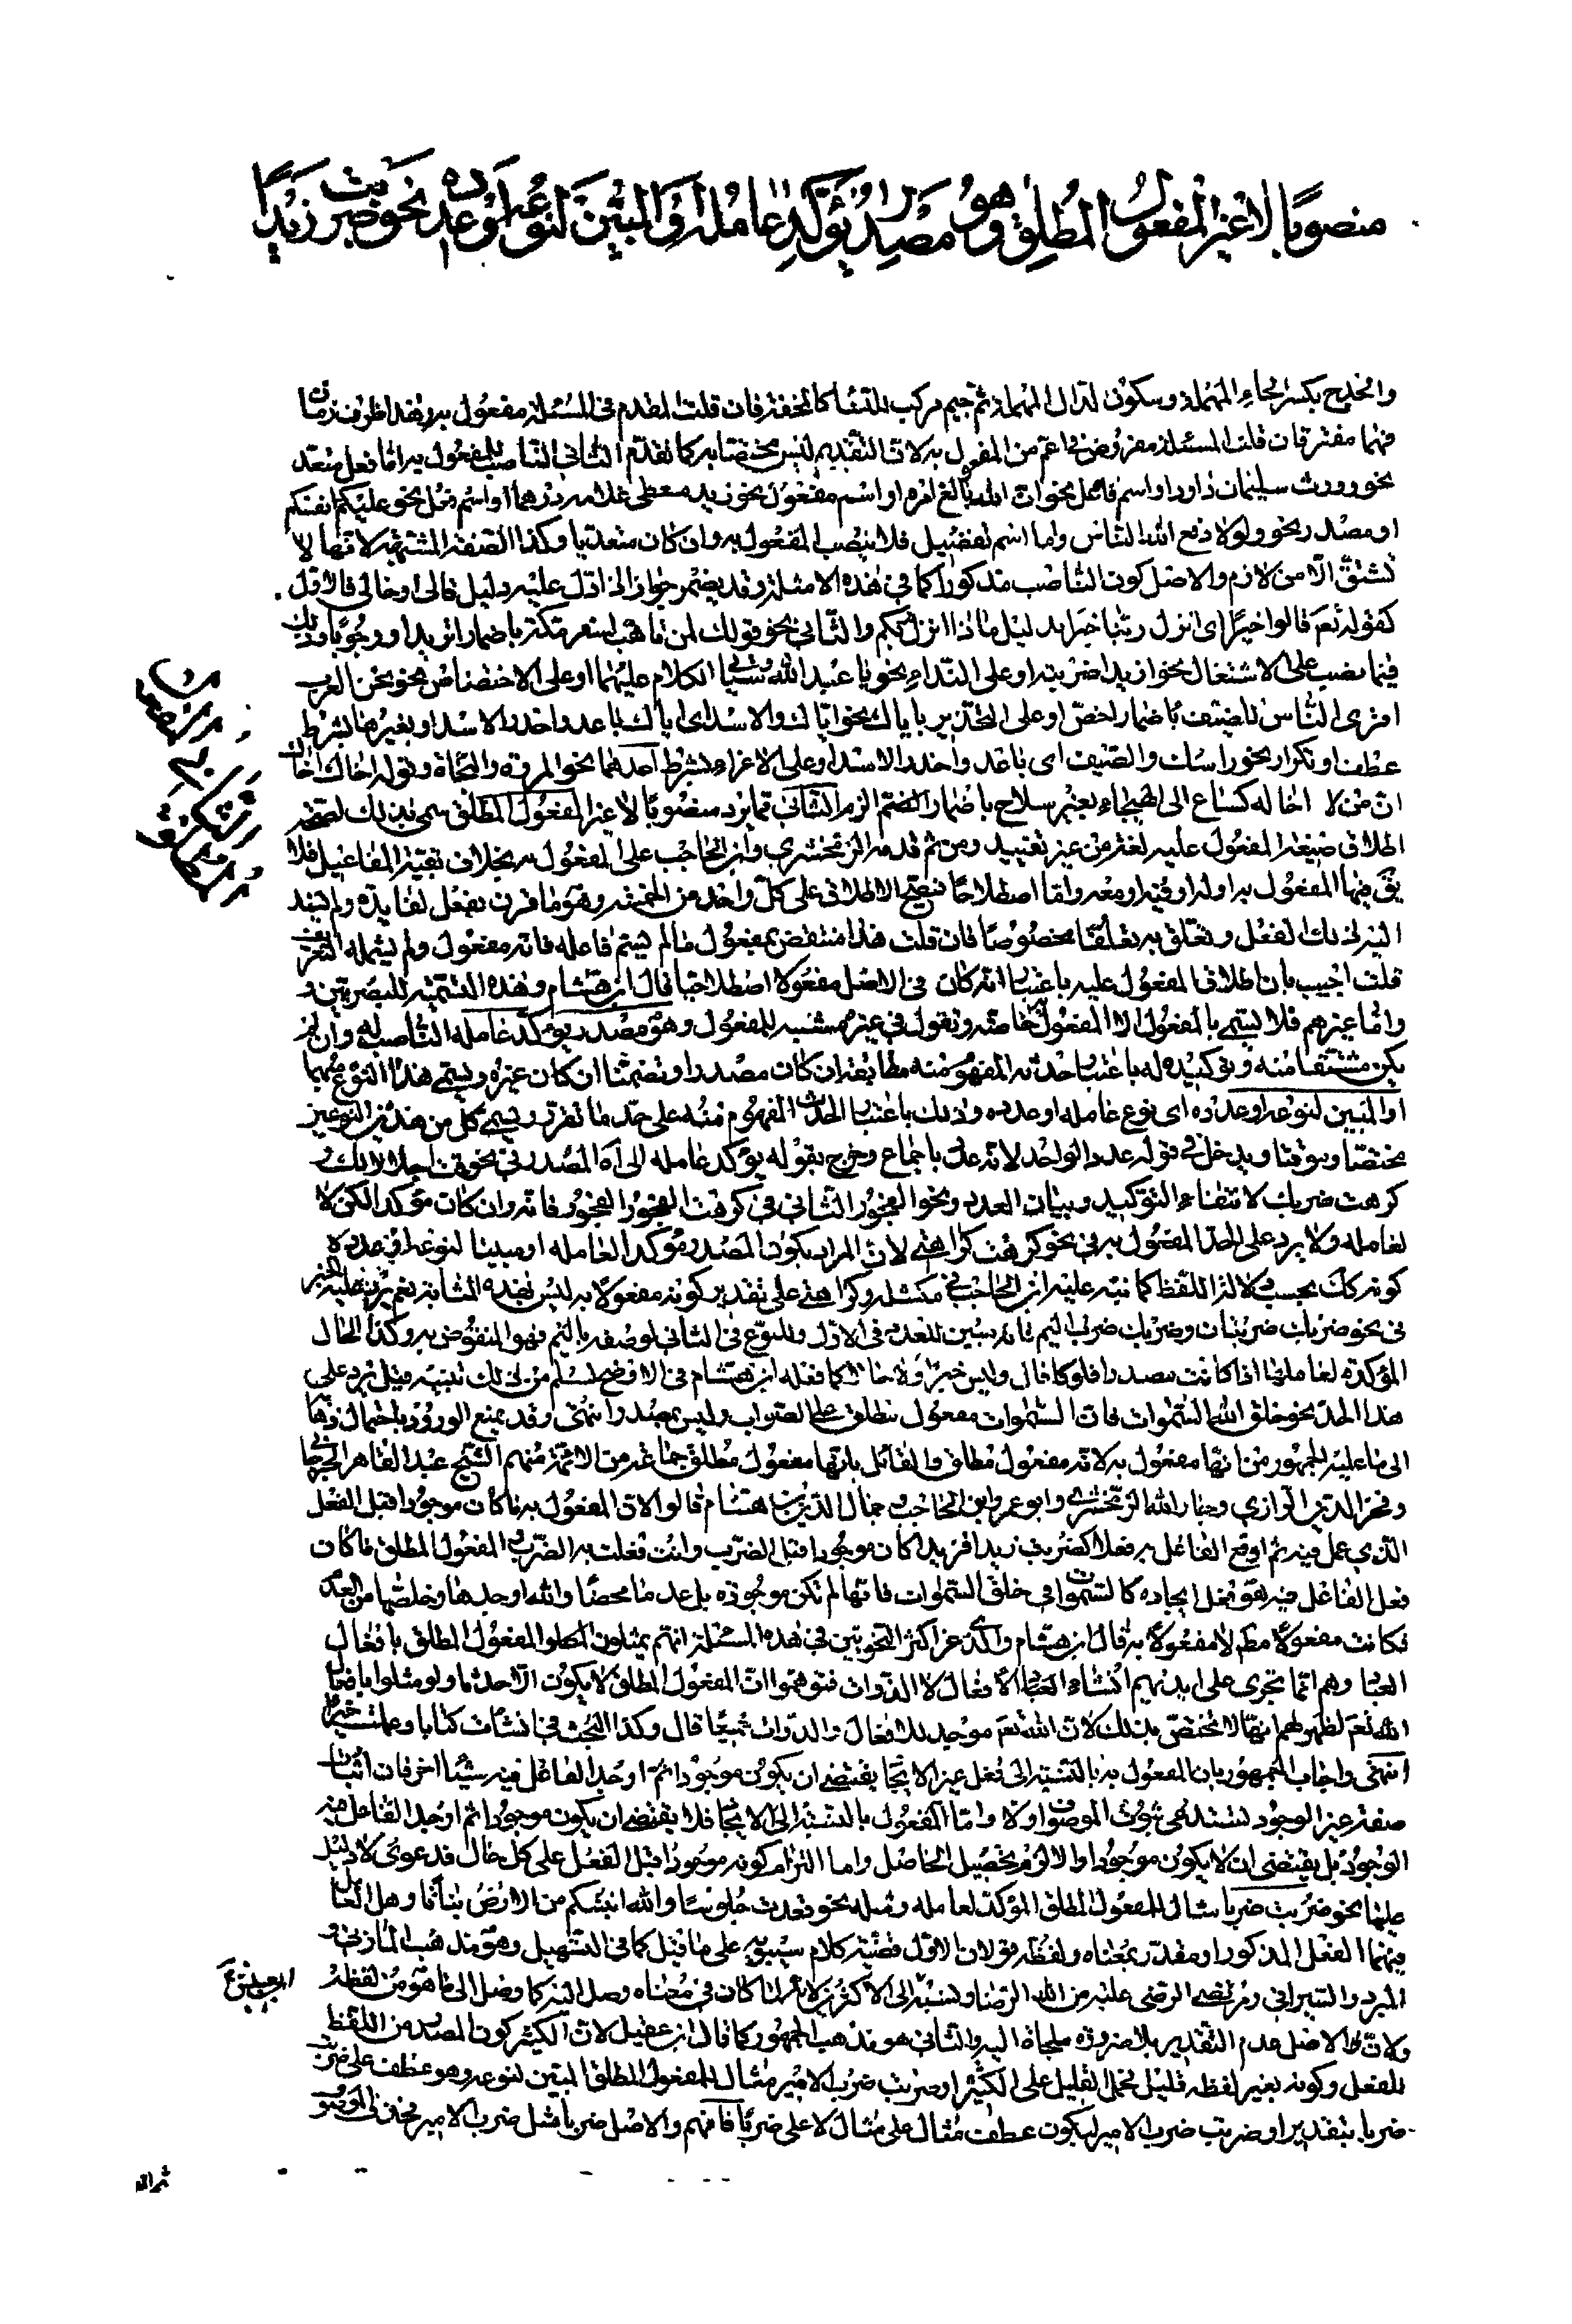 منصوبا لا غير المفعول المطلق وهو مصدر يؤكد عامله او المبين لنوعه او عدده نحو ضربت زيدا
والحدج بكسر الحاء المهملة وسكون الدال المهملة ثم جيم مركب للنساء كالمحفة فان قلت المقدم في المسئلة مفعول به وهذا ظرف زمان
فهما مفترقان قلت المسئلة مفروض في اعم من المفعول به لان التقديم ليس مختصا به كما تقدم الثاني الناصب للمفعول به اما فعل متعد
نحو وورث سليمان داود او اسم فاعل نحو ان الله بالغ امره او اسم مفعول نحو زيد معطى غلامه درهما او اسم فعل نحو عليكم انفسكم
او مصدر نحو ولولا دفع الله الناس واما اسم تفضيل فلا ينصب المفعول به وان كان متعديا وكذا الصفة المشبهة لانها لا
تشتق الا من لازم والاصل كون الناصب مذكورا كما في هذه الامثلة وقد يضمر جوازا اذا دل عليه دليل قالي او حالي فالاول
كقوله تعم قالوا خيرا اى انزل ربنا خيرا بدليل ماذا انزل ربكم والثاني نحو قولك لمن تاهب لسفر مكة باضمار اتريد او وجوبا وذلك
فيما نصب على الاشتغال نحو ازيدا ضربته او على النداء نحو يا عبد الله وسياتي الكلام عليهما او على الاختصاص نحو نحن العرب
اقرى الناس للضيف باضمار اخص او على التحذير باياك نحو اياك والاسد اى اياك باعد واحذر الاسد او بغيرها بشرط
عطف او تكرار نحو راسك والسيف اى باعد واحذر الاسد او على الاغراء بشرط احدهما نحو المروة والنجدة وقوله اخاك اخاك
ان من لا اخا له كساع الى الهيجاء بغير سلاح باضمار الضم الزم الثاني مما يرد منصوبا لا غير المفعول المطلق سمي بذلك لصحة
اطلاق صيغة المفعول عليه لغة من غير تقييد ومن ثم قدمه الزمخشري وابن الحاجب على المفعول به بخلاف بقية المفاعيل فلا
يق فيها المفعول به اوله او فيه او معه واما اصطلاحا فيصح الاطلاق على كل واحد من الخمسة وهو ما قرن بفعل لفائدة ولم يسند
اليه ذلك الفعل وتعلق به تعلقا مخصوصا فان قلت هذا منتقض بمفعول ما لم يسم فاعله فانه مفعول ولم يشمله التعريف
قلت اجيب بان اطلاق المفعول عليه باعتبار انه كان في الاصل مفعولا اصطلاحيا قال ابن هشام وهذه التسمية للبصريين و
واما غيرهم فلا يسمى بالمفعول الا المفعول به خاصة ونقول في غيره مشبه للمفعول وهو مصدر يؤكد عامله الناصب له وان لم
يكن مشتقا منه وتوكيده له باعتبار حدثه المفهوم منه مطابقة ان كان مصدرا وتضمنا ان كان غيره ويسمى هذا النوع مبهما
او المبين لنوعه او عدده اى نوع عامله او عدده وذلك باعتبار الحدث المفهوم منه على حد ما تقرر ويسمى كل من هذين النوعين
مختصا وموقتا ويدخل في قوله عدد الواحد لانه عدد باجماع وخرج بقوله يؤكد عامله الى آه المصدر في نحو قمت اجلالا لك و
كرهت ضربك لانتفاء التوكيد وبيان العدد ونحو الفجور الثاني في كرهت الفجور الفجور فانه وان كان مؤكدا لكن لا
لعامله ولا يرد على الحد المفعول به في نحو كرهت كراهتي لان المراد بكون المصدر مؤكدا لعامله او مبينا لنوعه او عدده
كونه كك بحسب دلالة اللفظ كما نبه عليه ابن الحاجب في وكراهتي على تقدير كونه مفعولا به ليس بهذه المثابة نعم يرد عليه الخبر
في نحو ضربك ضربتان وضربك ضرب اليم فانه مبين للعدد في الاول وللنوع في الثاني لوصفه باليم فهو المنقوض به وكذا الحال
المؤكدة لعاملها اذا كانت مصدرا فلو كما قال وليس خبرا ولا حالا كما فعله ابن هشام في الاوضح لسلم من ذلك تنبيه قيل يرد على
هذا الحد نحو خلق الله السموات فان السموات مفعول مطلق على الصواب وليس بمصدر انتهى وقد يمنع الورود باحتمال ذهابه
الى ما عليه الجمهور من انها مفعول به لا انه مفعول مطلق والقائل بانها مفعول مطلق جماعة من الائمة منهم الشيخ عبد القاهر الجرجاني
وفخر الدين الرازي وجار الله الزمخشري وابو عمرو ابن الحاجب وجمال الدين بن هشام قالوا لان المفعول به ما كان موجودا قبل الفعل
الذي عمل فيه ثم اوقع الفاعل به فعلا كضربت زيدا فزيدا كان موجودا قبل الضرب وانت فعلت به الضرب والمفعول المطلق ما كان
فعل الفاعل فيه هو فعل ايجاده كالسموات في خلق السموات فانها لم تكن موجوده بل عدما محضا والله اوجدها وخلصها من العدم
فكانت مفعولا مطلقا لا مفعولا به قال ابن هشام والذي غر اكثر النحويين في هذه المسئلة انهم يمثلون المفعول المطلق بافعال
العباد وهم انما تجرى على ايديهم انشاء الافعال لا الذوات فتوهموا ان المفعول المطلق لا يكون الا حدثا ولو مثلوا بافعال
الله تعم لظهر لهم انها لا تختص بذلك لان الله تعم موجد للافعال والذوات جميعا قال وكذا البحث في انشات كتابا وعملت خيرا
انتهى واجاب الجمهور بان المفعول به بالنسبة الى فعل غير الايجاد يقتضى ان يكون موجودا ثم اوجد الفاعل فيه شيئا اخر فان اثبات
صفة غير الوجود تستدعى ثبوت الموصوف اولا واما المفعول بالنسبة الى الايجاد فلا يقتضى ان يكون موجودا ثم اوجد الفاعل فيه
الوجود بل يقتضى ان لا يكون موجودا والا لزم تحصيل الحاصل واما التزام كونه موجودا قبل الفعل على كل حال فدعوى لا دليل
عليها نحو ضربت ضربا مثال للمفعول المطلق المؤكد لعامله ومثله نحو قعدت جلوسا والله انبتكم من الارض نباتا وهل العامل
فيهما الفعل المذكور او مقدر بمعناه ولفظه قولان الاول قضية كلام سيبويه على ما قيل كما في التسهيل وهو مذهب المازني و
المبرد والسيرافي ومرتضى الرضي عليه من الله الرضا ونسبه الى الاكثرين لانه لما كان في معناه وصل اليه كما وصل الى ما هو من لفظه
ولان الاصل عدم التقدير بلا ضرورة ملجاة اليه والثاني هو مذهب الجمهور كما قال ابن عقيل لان الكثير كون المصدر من اللفظ
للفعل وكونه بغير لفظه قليل فحمل القليل على الكثير او ضربت ضرب الامير مثال للمفعول المطلق المبين لنوعه وهو عطف على ضربت
ضربا بتقدير او ضربت ضرب الامير ليكون عطف مثال على مثال لا على ضربا فافهم والاصل ضربا مثل ضرب الامير فحذف الموصوف